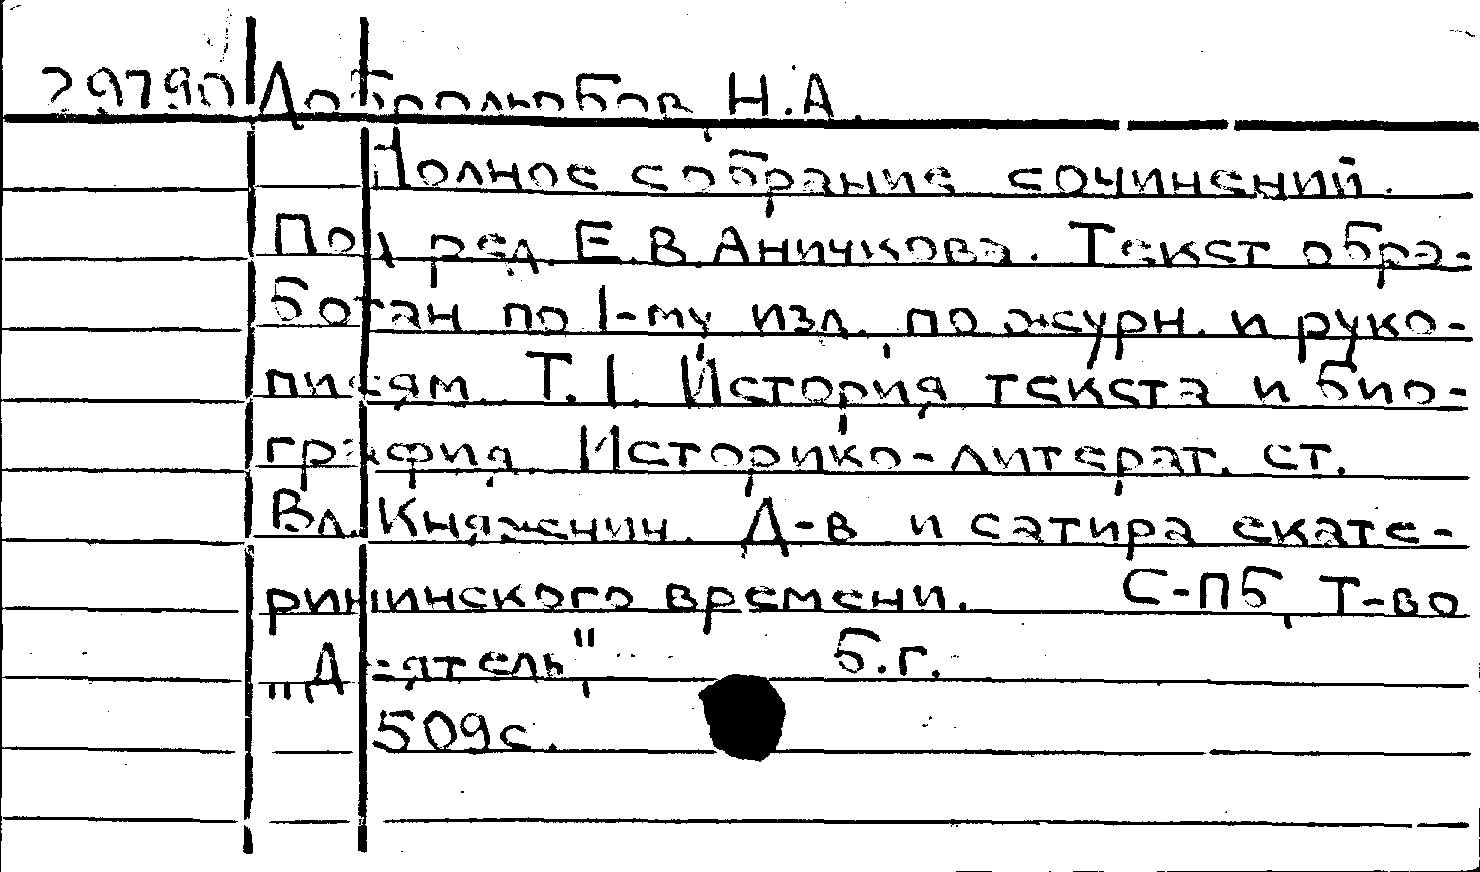 29790 Добролюбов, Н.А.
Полное собрание сочинений.
Под ред. Е.В. Аничкова. Текст обра-
ботан по 1-му изд., по журн. и руко-
писям. Т. 1. История текста и био-
графия. Историко-литерат. ст.
Вл. Княжнин. Д-в и сатира екате-
рининского времени. С-ПБ, Т-во
„Деятель", Б.г.
509с.